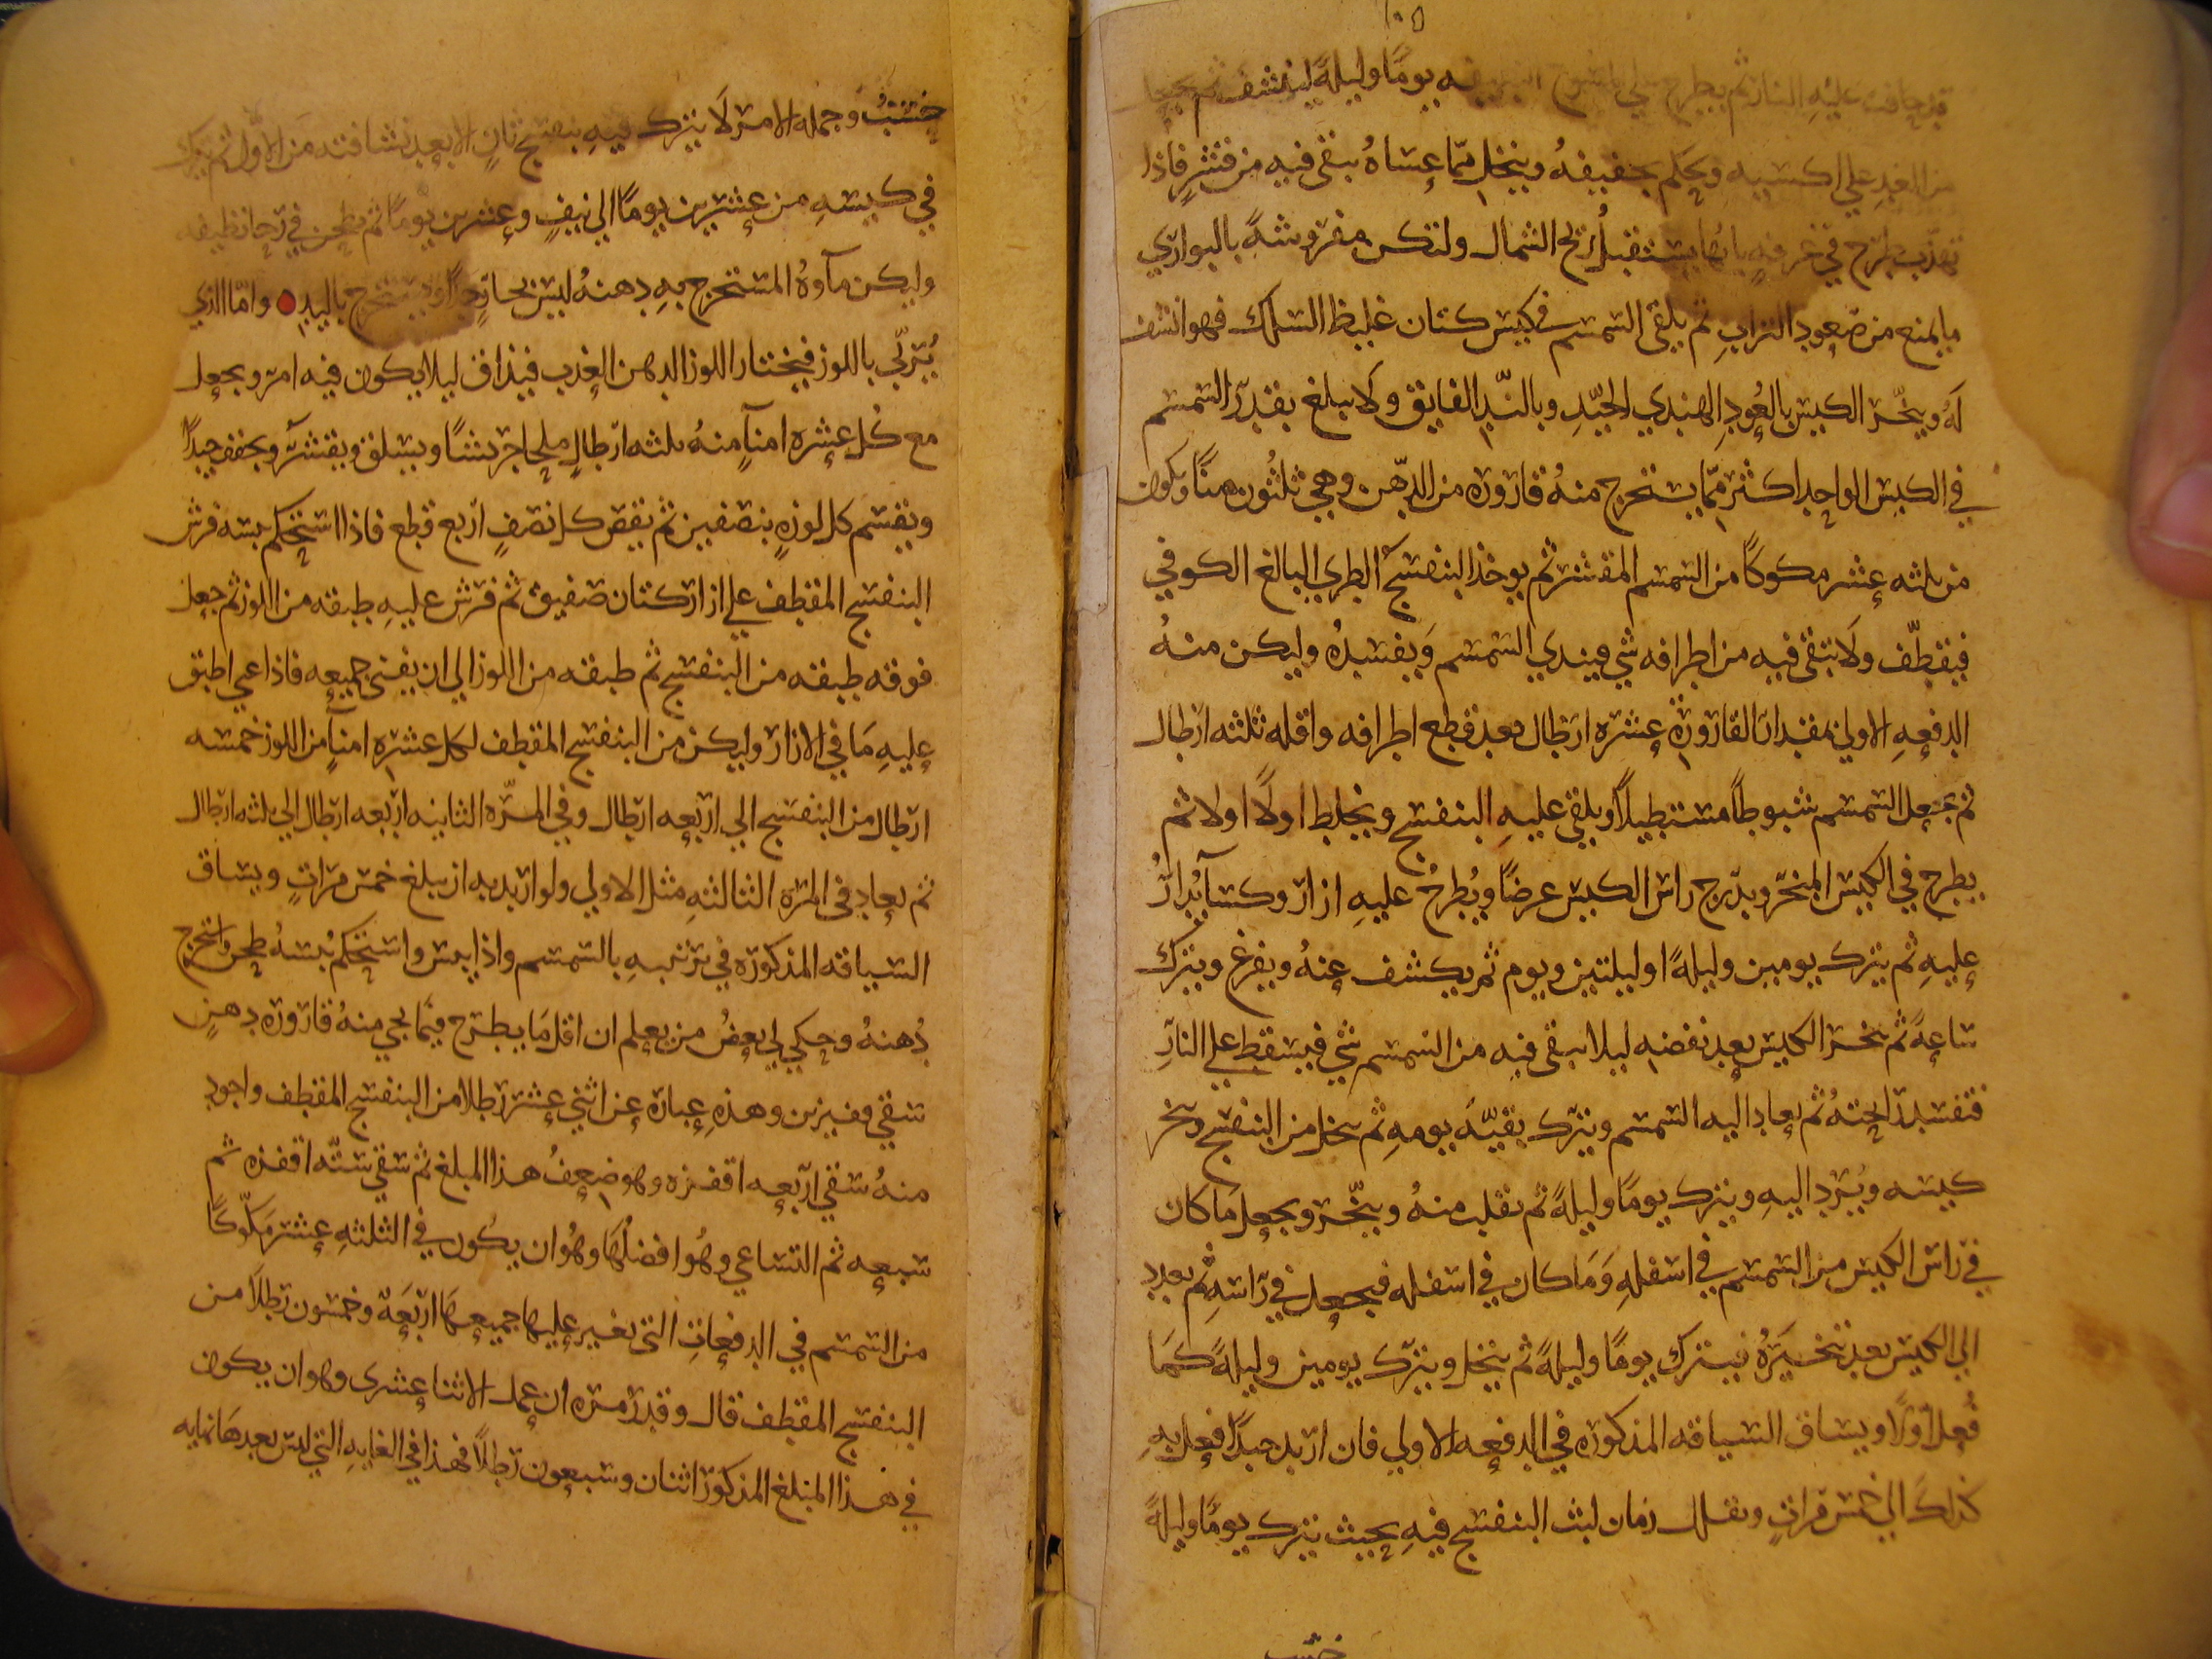 ١٠٥
قد جافت عليه النار ثم يطرح علي يوما وليلة لينشف ثم يجعل
من الغد علي اكسية ويحكم تجفيفه وينخل مما عساه يبقى فيه من قشر فاذا
تهذب طرح في غرفة بابها يستقبل ريح الشمال ولتكن مفروشة بالبواري
ما يمنع من صعود التراب ثم يلقى السمسم في كيس كتان غليظ السلك فهو انشف
له ويبخر الكيس بالعود الهندي الجيد وبالند الفايق ولا يبلغ بقدر السمسم
في الكيس الواحد اكثر مما يستخرج منه قارورة من الدهن وهي ثلثون منا ويكون
من ثلثه عشر مكوكا من السمسم المقشر ثم يوخذ البنفسج الطري البالغ الكوفي
فيقطف ولا يبقى فيه من اطرافه شي فيندي السمسم ويفسده وليكن منه
الدفعه الاولي بمقدار القارورة عشره ارطال بعد قطع اطرافه واقله ثلثه ارطال
ثم يجعل السمسم شبوطا مستطيلا ويلقى عليه البنفسج ويخلط اولا اولا ثم
يطرح في الكيس المبخر ويدرج راس الكيس عرضا ويطرح عليه ازار وكسا يدار
عليه ثم يترك يومين وليلة او ليلتين ويوم ثم يكشف عنه ويفرغ ويترك
ساعة ثم يبخر الكيس بعد نفضه ليلا يبقى فيه من السمسم شي فيسقط علي النار
فتفسد رايحته ثم يعاد اليه السمسم ويترك بقية يومه ثم ينخل من البنفسج ويبخر
كيسه ويرد اليه ويترك يوما وليلة ثم يقلب منه ويبخر ويجعل ما كان
في راس الكيس من السمسم في اسفله وما كان في اسفله فيجعل في راسه ثم يعاد
الي الكيس بعد تبخيره فيترك يوما وليلة ثم ينخل ويترك يومين وليلة كما
فعل اولا ويساق السياقه المذكوره في الدفعه الاولي فان اريد جيدا فعل به
كذلك الي خمس مرات ويقلل زمان لبث البنفسج فيه بحيث يترك يوما وليلة
خشب
خشب وجمله الامر لا يترك فيه بنفسج ثان الا بعد نشافته من الاول ثم يترك
في كيسه من عشرين يوما الي نيف وعشرين يوما ثم يطحن في رحا نظيفه
وليكن ماوه المستخرج به دهنه ليس بحار جدا ويستخرج باليد واما الذي
يربي باللوز فيختار اللوز الدهن العذب فيذاق ليلا يكون فيه امر ويجعل
مع كل عشره امنا منه ثلثه ارطال ملحا جريشا ويسلق ويقشر ويجفف جيدا
ويقسم كل لوزه بنصفين ثم يقص كل نصف اربع قطع فاذا استحكم يبسه فرش
البنفسج المقطف علي ازار كتان صفيق ثم فرش عليه طبقه من اللوز ثم جعل
فوقه طبقه من البنفسج ثم طبقه من اللوز الي ان يفنى جميعه فاذا عمي اطبق
عليه ما في الازار وليكن من البنفسج المقطف لكل عشره امنا من اللوز خمسه
ارطال من البنفسج الي اربعه ارطال وفي المره الثانيه اربعه ارطال الي ثلثه ارطال
ثم يعاد في المره الثالثه مثل الاولي ولو اريد به ان يبلغ خمس مرات ويساق
السياقه المذكوره في تربيه بالسمسم واذا يبس واستحكم يبسه طحن واستخرج
دهنه وحكي لي بعض من يعلم ان اقل ما يطرح فيما يجي منه قارورة دهن
سقي قفيزين وهذه عبارة عن اثني عشر رطلا من البنفسج المقطف واجود
منه سقي اربعه اقفزه وهو ضعف هذا المبلغ ثم سقي سته اقفزه ثم
سبعه ثم التساعي وهو افضلها وهو ان يكون في الثلثه عشر مكوكا
من السمسم في الدفعات التي يغير عليها جميعها اربعة وخمسون رطلا من
البنفسج المقطف قال وقدر مره ان عمل الاثنا عشرى وهو ان يكون
في هذا المبلغ المذكور اثنان وسبعون رطلا فهذا في الغايه التي ليس بعدها نهايه